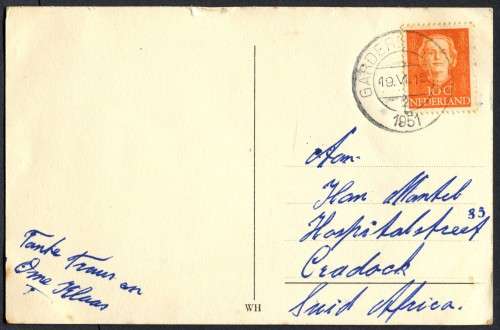 GARDEREN
19.VI.15
1951
10c
NEDERLAND
Aan
Han Mantel
Hospitalstreet 33
Cradock
Suid Africa.
Tante Truus en
Ome Klaas
WH